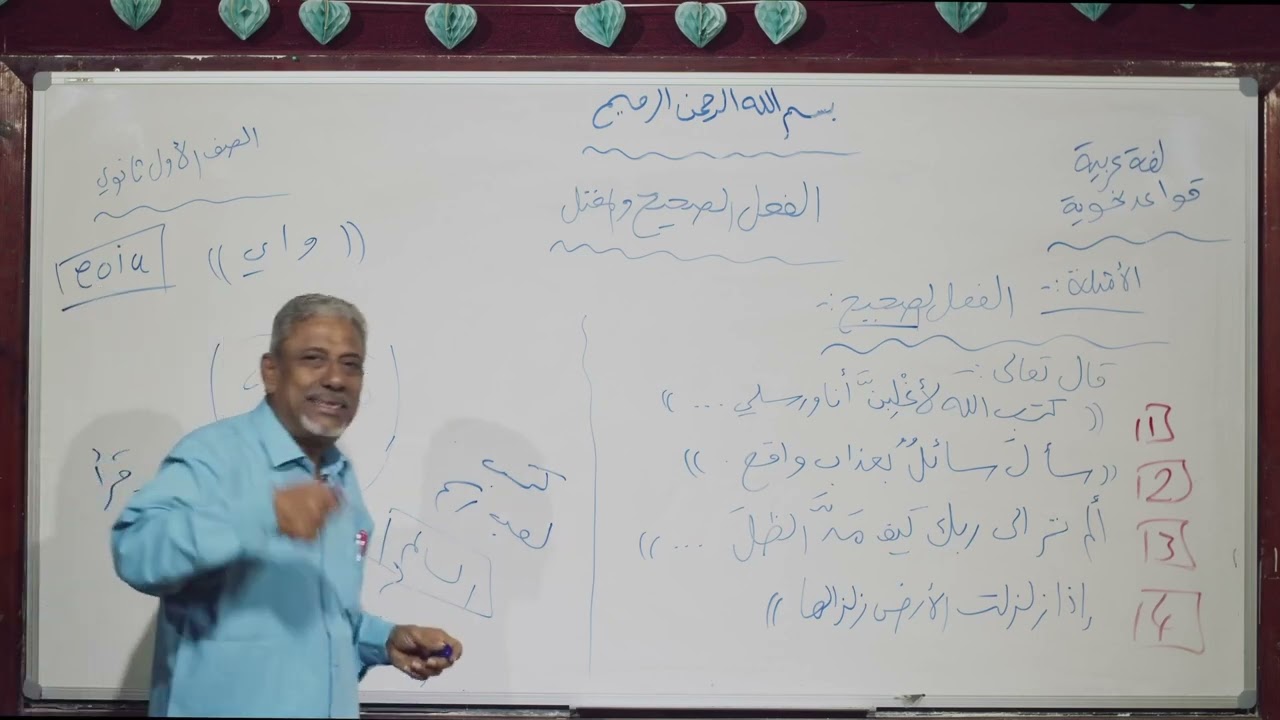 بسم الله الرحمن الرحيم
لغة عربية
قواعد نحوية
الصف الأول ثانوي
الفعل الصحيح والمعتل
الأمثلة :-
الفعل الصحيح :-
قال تعالى :-
1 (( كتب الله لأغلبنَّ أنا ورسلي ... ))
2 (( سألَ سائلٌ بعذاب واقع . ))
3 ألم تر الى ربك كيف مدَّ الظلَ ... ))
4 إذا زلزلت الأرض زلزالها ))
(( و اي ))
eoiu
كتب
لعب
السالم
قرأ